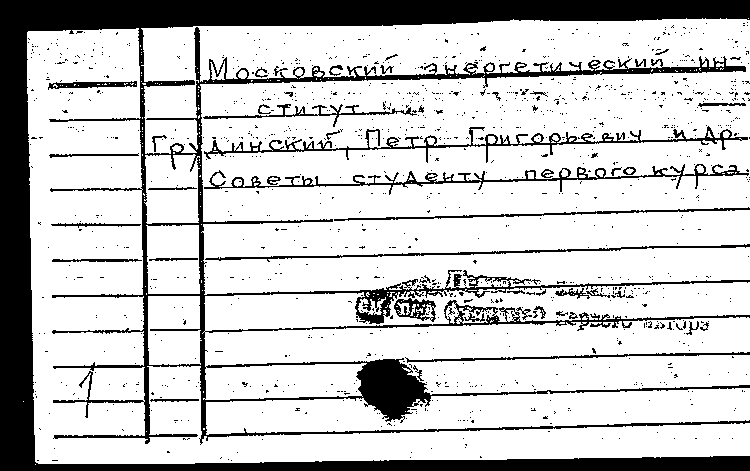 Московский энергетический ин-
ститут
Грудинский, Петр Григорьевич и др.
Советы студенту первого курса.
первого автора
1